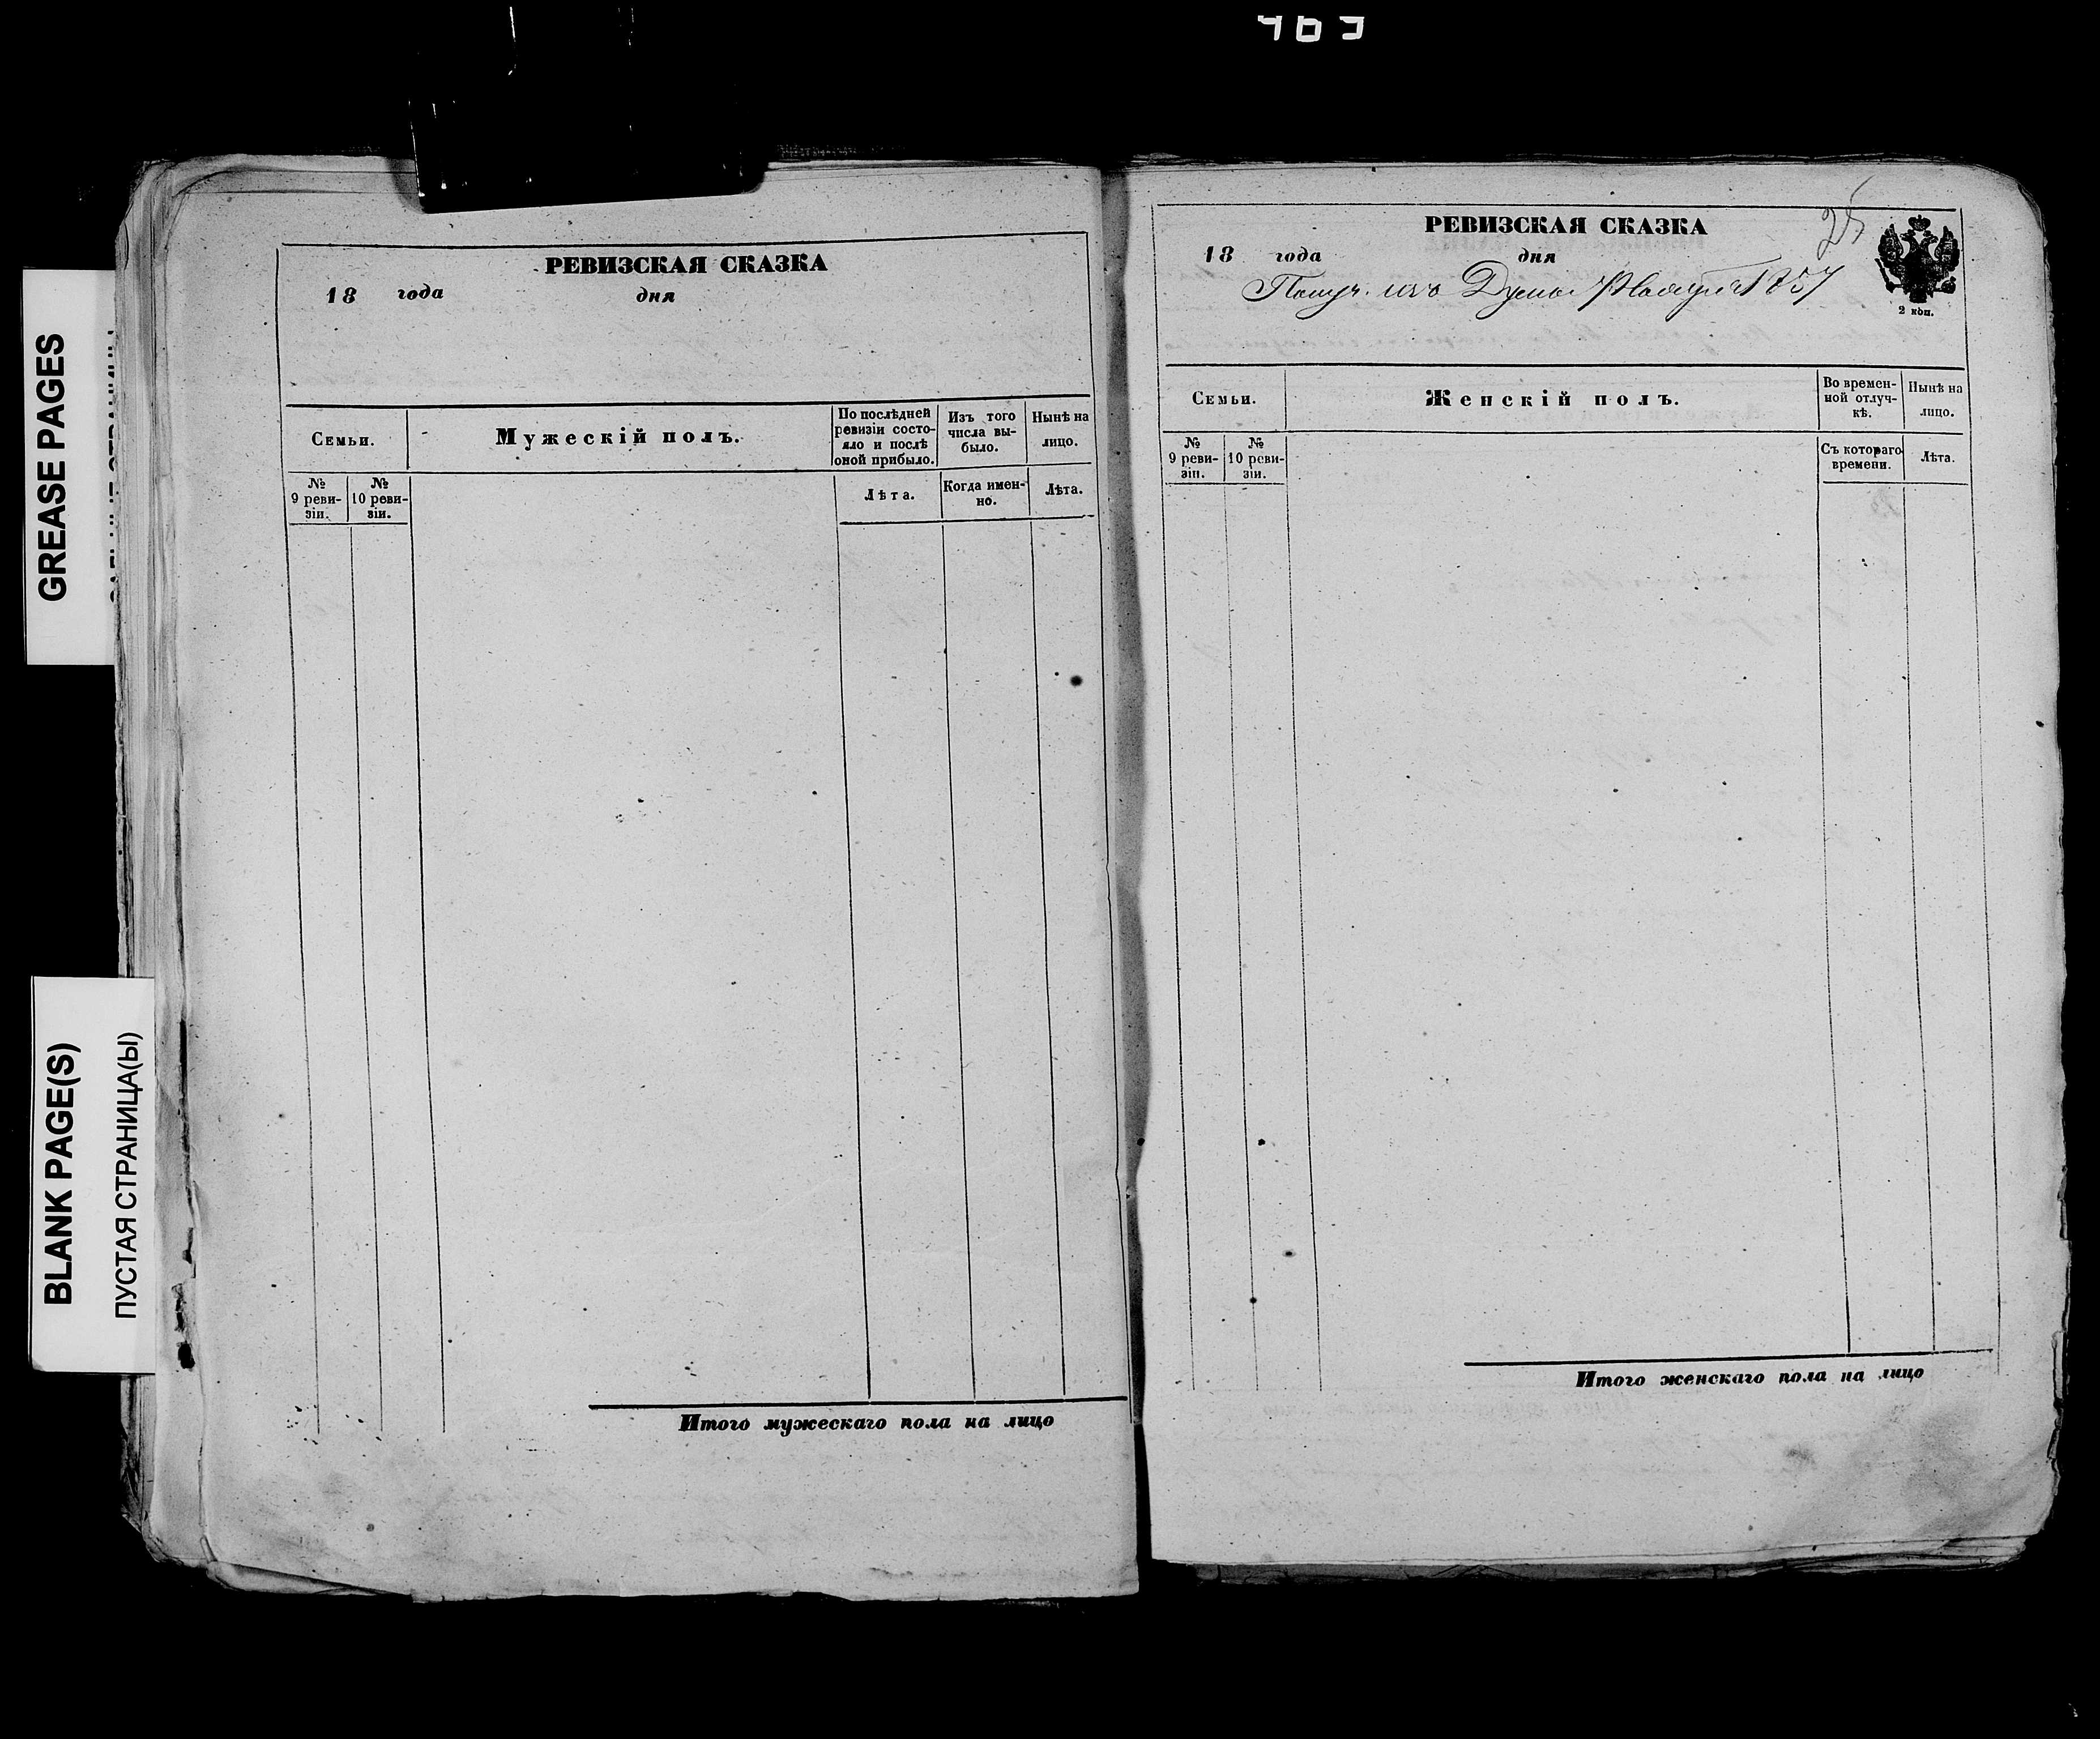 GREASE PAGES
BLANK PAGE(S)
ПУСТАЯ СТРАНИЦА(Ы)
РЕВИЗСКАЯ СКАЗКА
18 года дня
Семьи.
Мужескій полъ.
По послѣдней ревизіи состо-
яло и послѣ
оной прибыло.
Изъ того
числа вы-
было.
Нынѣ на
лицо.
№
9 реви-
зіи.
№
10 реви-
зіи.
Лѣта.
Когда имен-
но.
Лѣта.
Итого мужескаго пола на лицо
РЕВИЗСКАЯ СКАЗКА
25
18 года дня
Получ. изъ Думы 1857
2 коп.
Семьи.
Женскій полъ.
Во времен-
ной отлуч-
кѣ.
Нынѣ на
лицо.
№
9 реви-
зіи.
№
10 реви-
зіи.
Съ котораго
времени.
Лѣта.
Итого женскаго пола на лицо